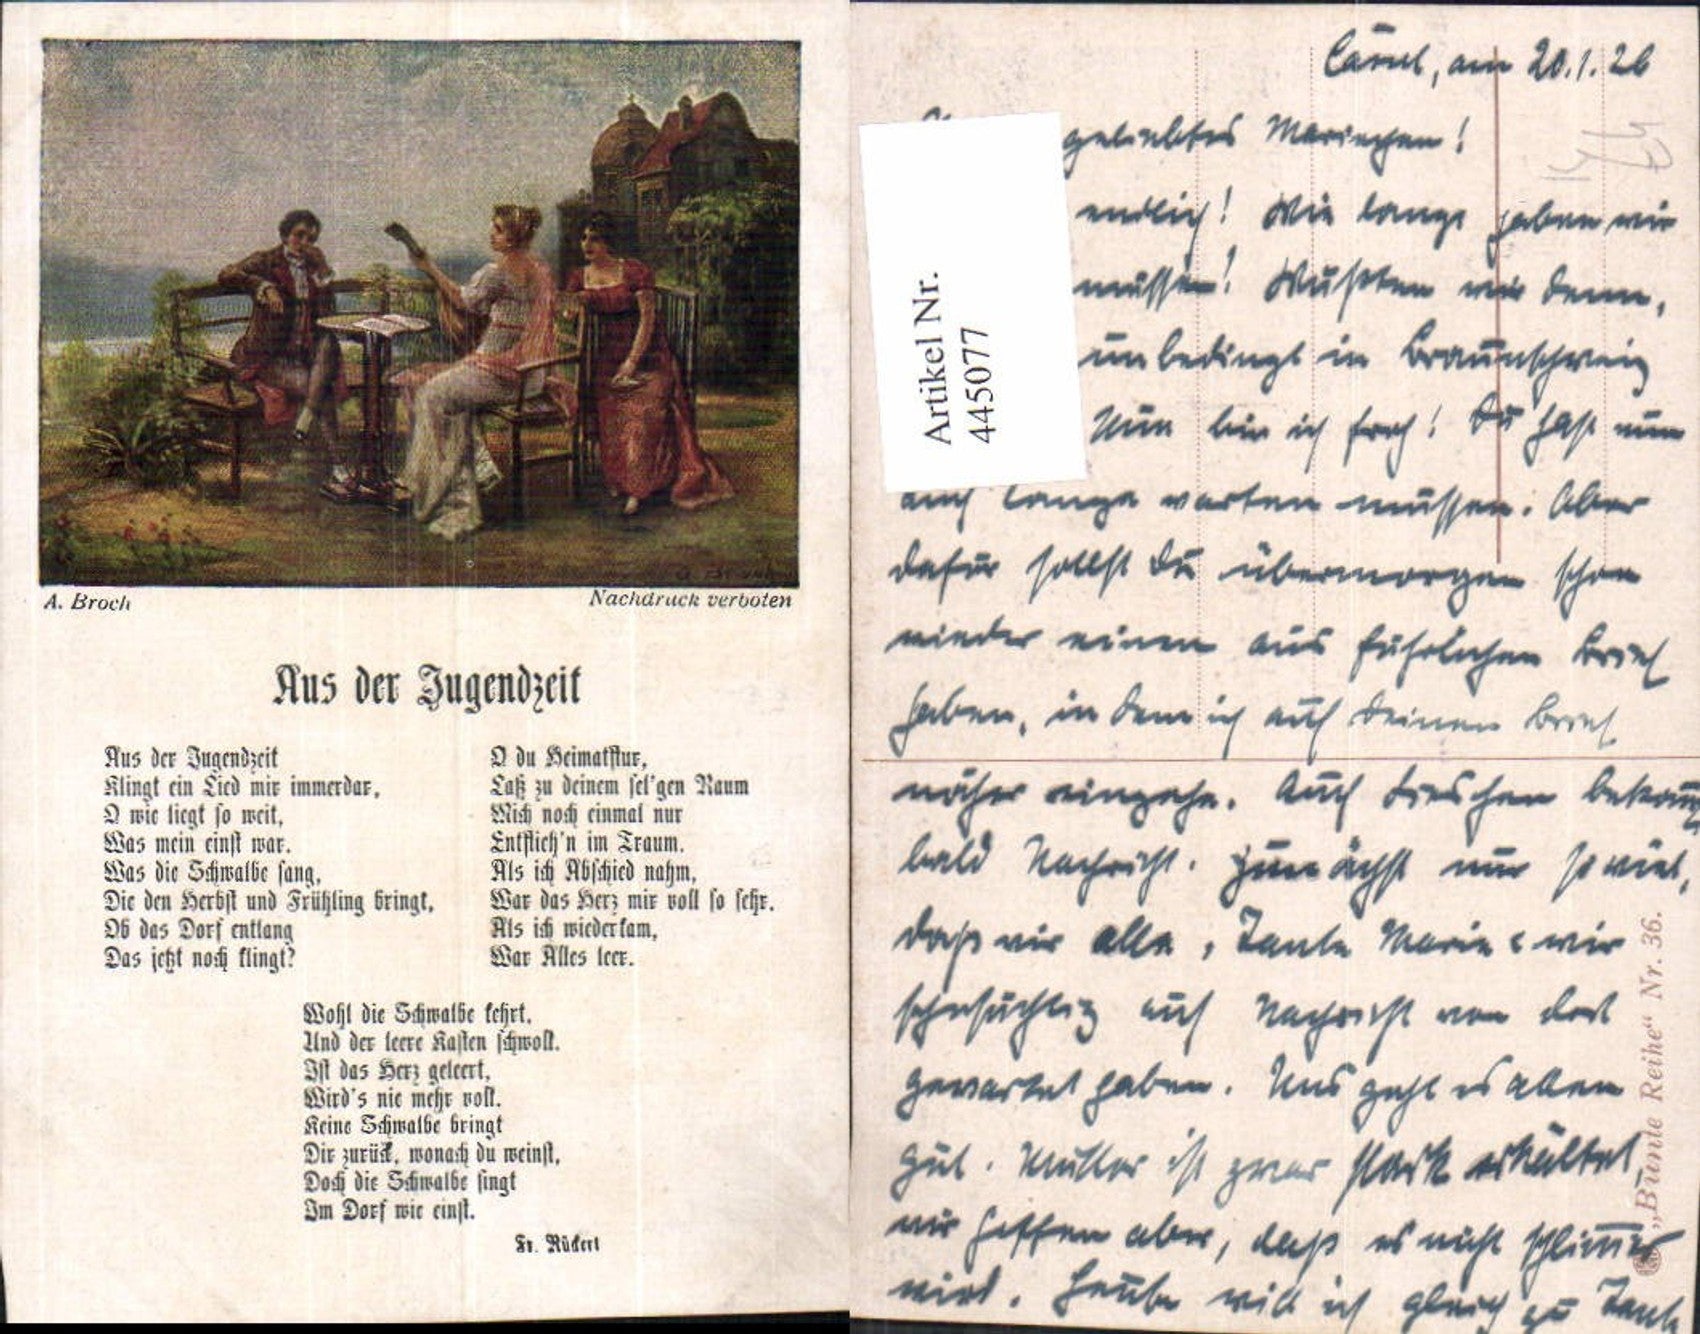 A. Broch
Nachdruck verboten
Aus der Jugendzeit
Aus der Jugendzeit
Klingt ein Lied mir immerdar,
O wie liegt so weit,
Was mein einst war.
Was die Schwalbe sang,
Die den Herbst und Frühling bringt,
Ob das Dorf entlang
Das jetzt noch klingt?
O du Heimatflur,
Laß zu deinem sel'gen Raum
Mich noch einmal nur
Entflieh'n im Traum.
Als ich Abschied nahm,
War das Herz mir voll so sehr.
Als ich wiederkam,
War Alles leer.
Wohl die Schwalbe kehrt,
Und der leere Kasten schwoll.
Ist das Herz geleert,
Wird's nie mehr voll.
Keine Schwalbe bringt
Dir zurück, wonach du weinst,
Doch die Schwalbe singt
Im Dorf wie einst.
Fr. Rückert
am 20.1.26
geliebtes Mariechen!
endlich! Wie lange haben wir
müssen! Wußten wir denn,
unbedingt in Braunschweig
Nun bin ich froh! Du hast nun
auch lange warten müssen. Aber
dafür sollst Du übermorgen schon
wieder einen ausführlichen Brief
haben, in dem ich auf Deinen Brief
näher eingehe. Auch Lieschen
bald Nachricht. Zunächst nur soviel,
daß wir alle, Tante Marie & wir
sehnsüchtig auf Nachricht von dort
gewartet haben. Uns geht es allen
gut. Mutter ist zwar stark erkältet,
wir hoffen aber, daß es nicht schlimmer
wird. Heute will ich gleich zu Tante
Artikel Nr.
445077
„Bunte Reihe“ Nr. 36.